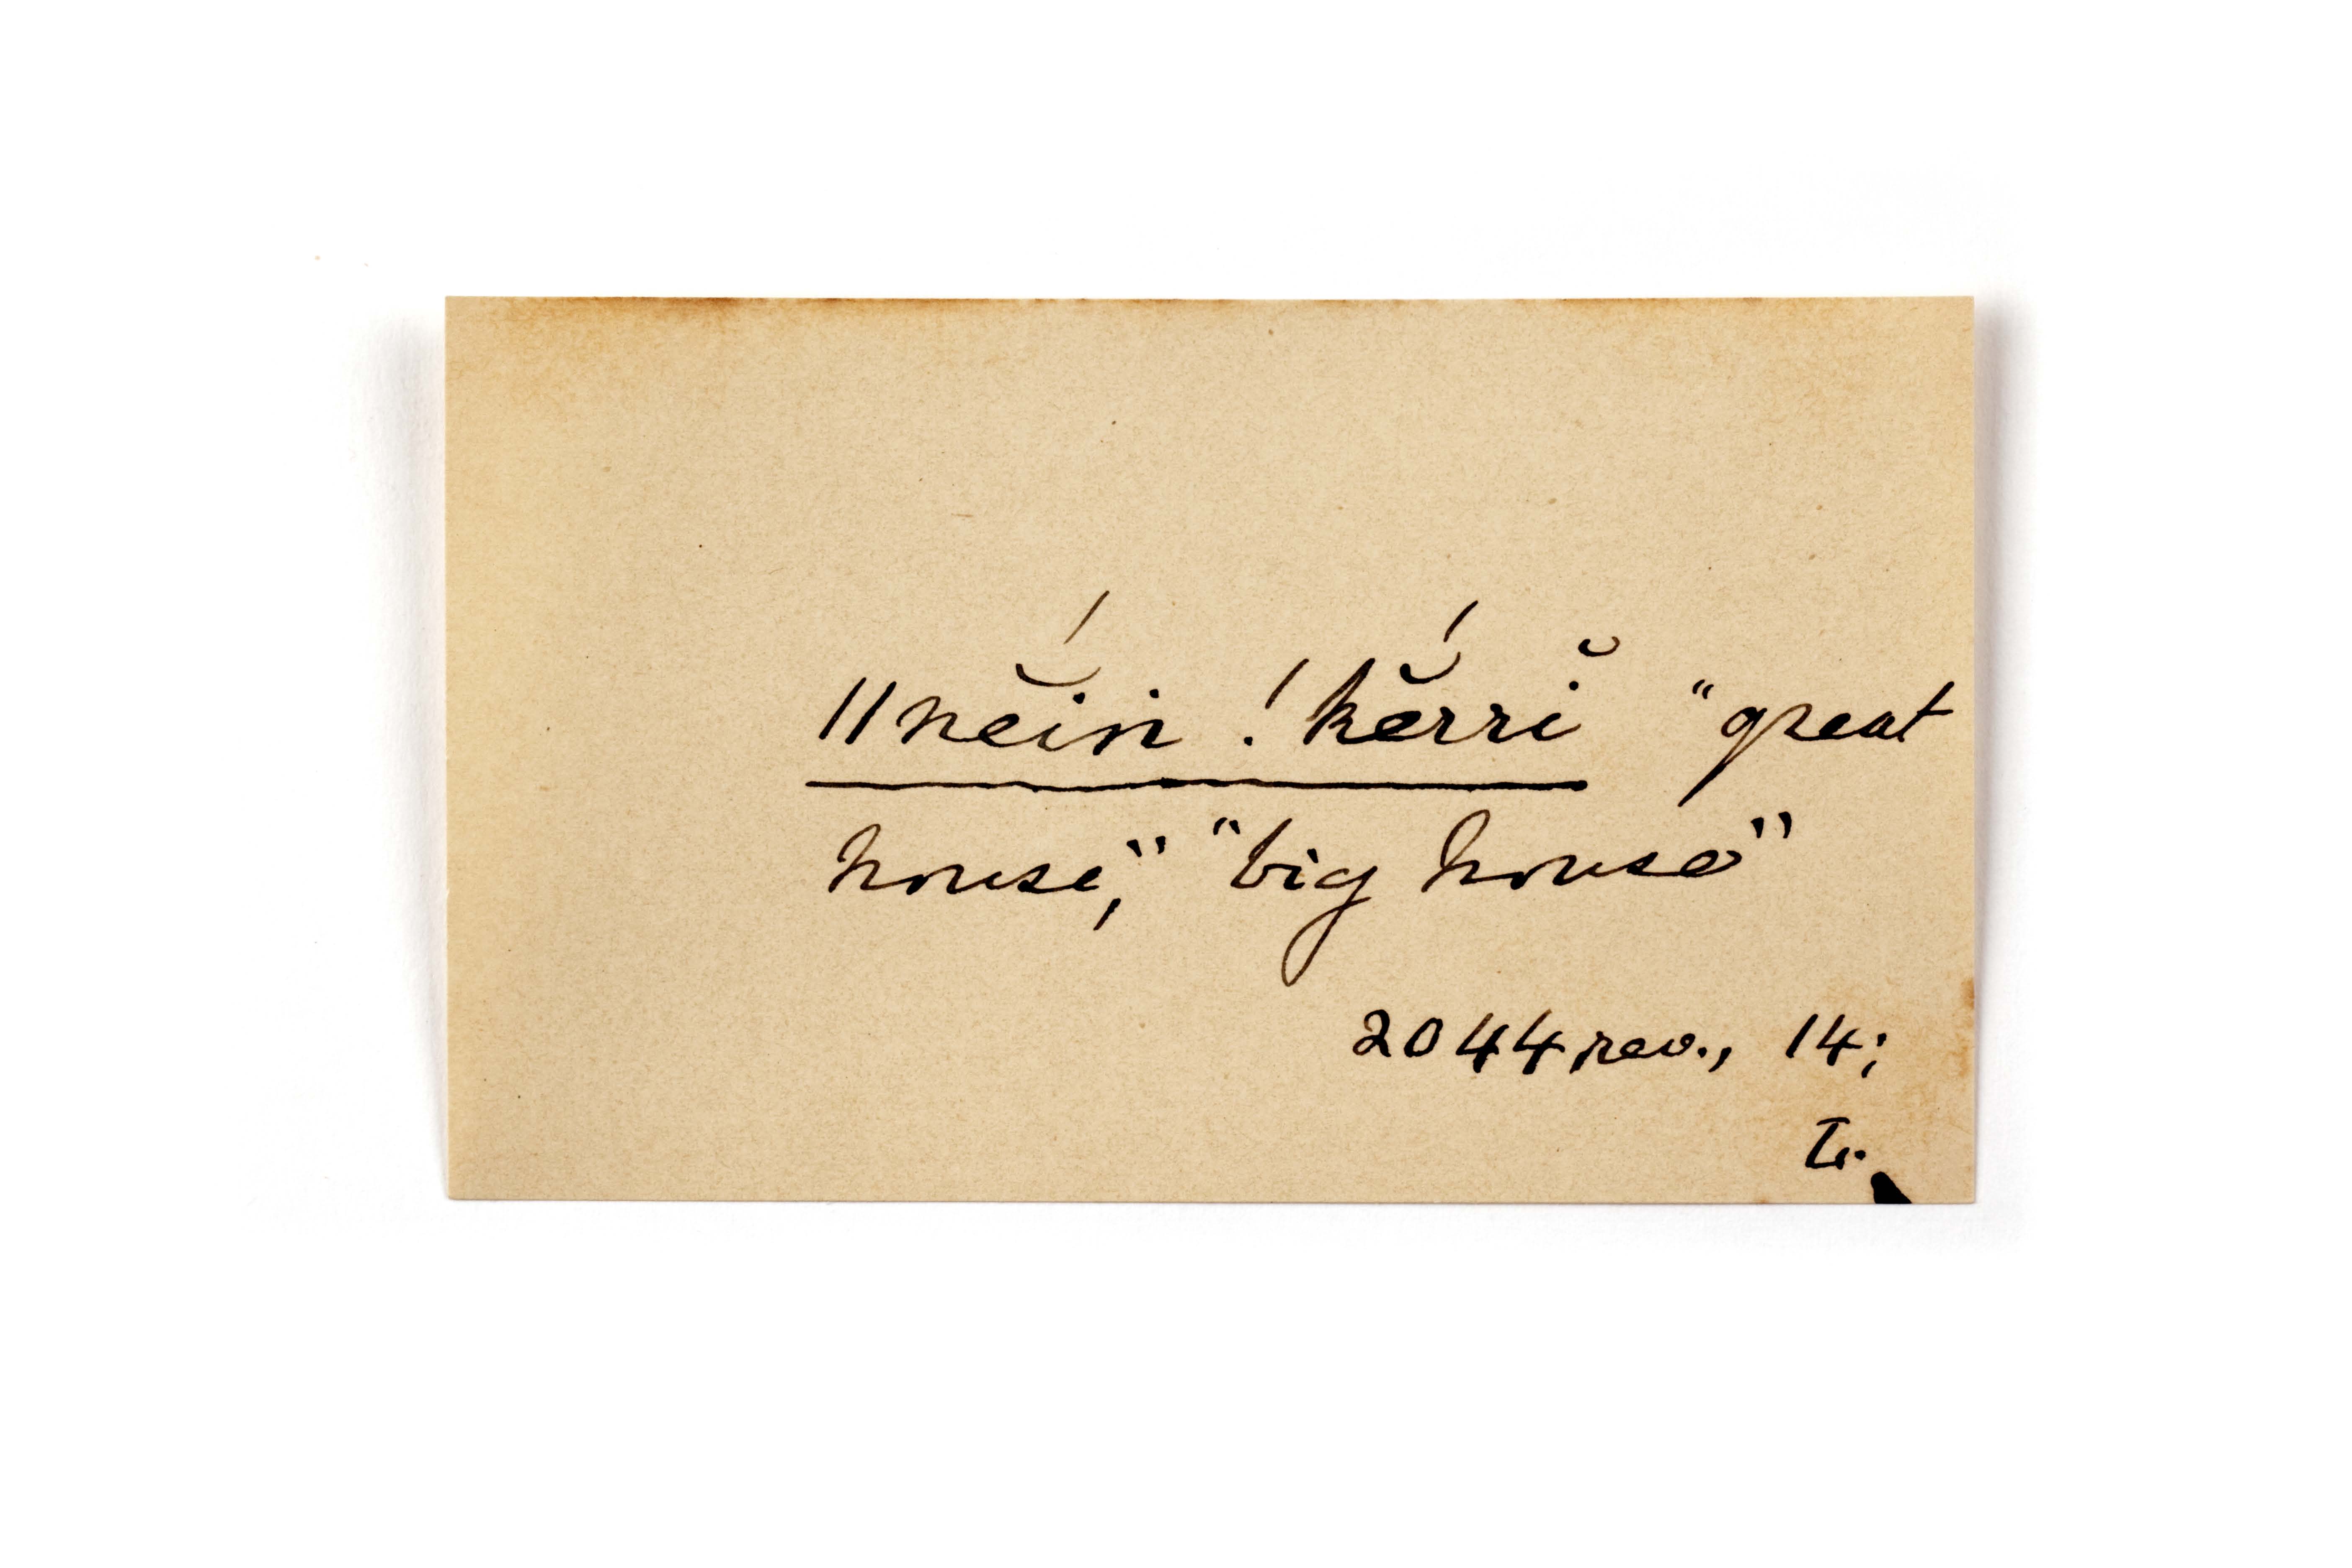 ǁnĕ́in !kĕ́rrĭ "great
house," "big house"
2044 rev., 14;
L.